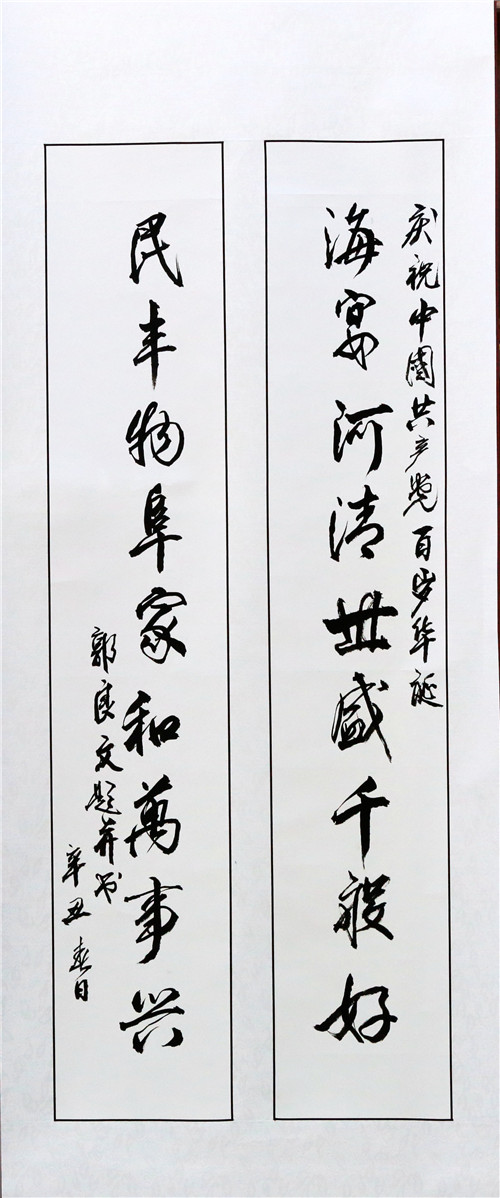 庆祝中國共产党百岁华诞
海宴河清世盛千般好
民丰物阜家和萬事兴
郭良文题并书
辛丑春日